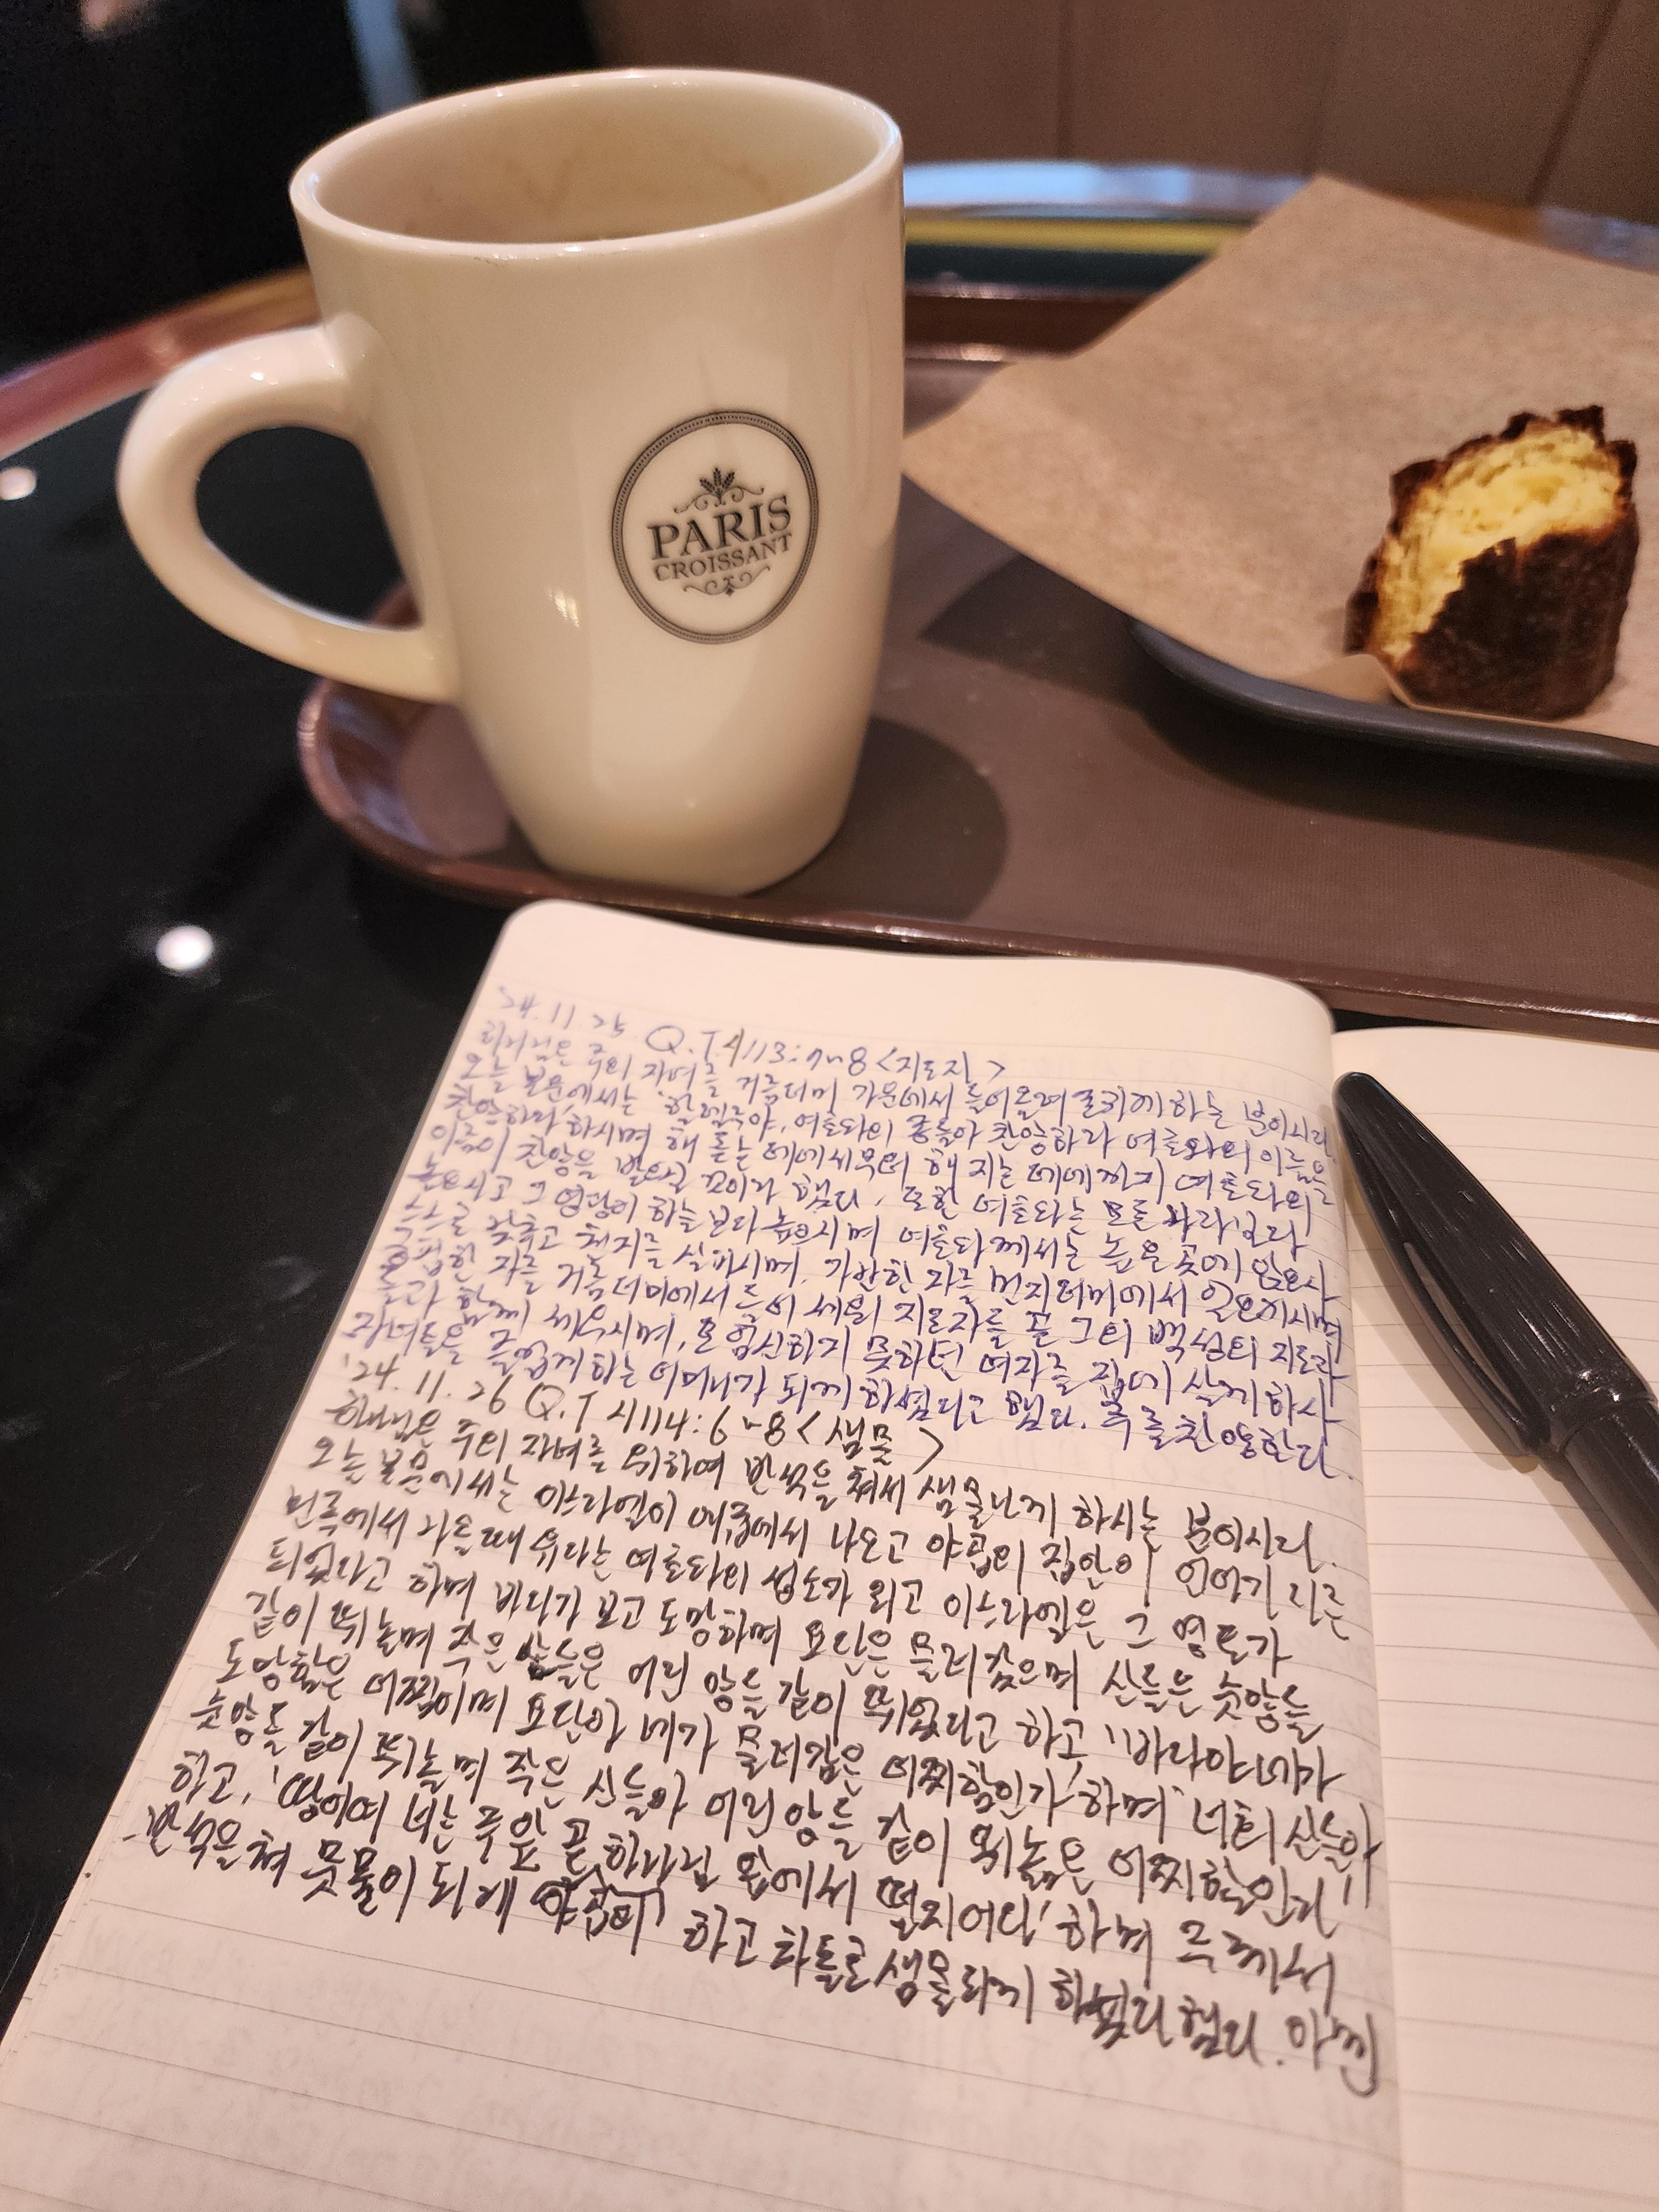 PARIS
CROISSANT
'24.11.25 Q.T 시113:7~8 <지도자>
하나님은 주의 자녀를 거름더미 가운데서 들어올려 존귀케 하는 분이시라
오늘 본문에서는 '할렐루야, 여호와의 종들아 찬양하라 여호와의 이름을
찬양하라' 하시며 해 돋는 데에서부터 해 지는 데에까지 여호와의
이름이 찬양을 받으실 것이라 했다. 또한 여호와는 모든 나라보다
높으시고 그 영광이 하늘보다 높으시며 여호와께서는 높은 곳에 앉으사
스스로 낮추고 천지를 살피시며, 가난한 자를 먼지더미에서 일으키시며
궁핍한 자를 거름더미에서 들어 세워 지도자들 곧 그의 백성의 지도자
들과 함께 세우시며, 또 임신하지 못하던 여자를 집에 살게 하사
자녀들을 즐겁게 하는 어머니가 되게 하셨다고 했다. 주를 찬양한다.
'24.11.26 Q.T 시114:6~8 <샘물>
하나님은 주의 자녀를 위하여 반석을 쳐서 샘물나게 하시는 분이시다.
오늘 본문에서는 이스라엘이 애굽에서 나오고 야곱의 집안이 언어가 다른
민족에서 나올 때 유다는 여호와의 성소가 되고 이스라엘은 그 영토가
되었다고 하며 바다가 보고 도망하며 요단은 물러갔으며 산들은 숫양들
같이 뛰놀며 작은 산들은 어린 양들 같이 뛰었다고 하고, "바다야 네가
도망함은 어찌함이며 요단아 네가 물러감은 어찌함인가" 하며 "너희 산들아
숫양들 같이 뛰놀며 작은 산들아 어린 양들 같이 뛰놂은 어찌함인가"
하고, '땅이여 너는 주 앞 곧 하나님 앞에서 떨지어다' 하며 주께서
반석을 쳐 못물이 되게 하고 차돌로 샘물되게 하셨다 했다. 아멘